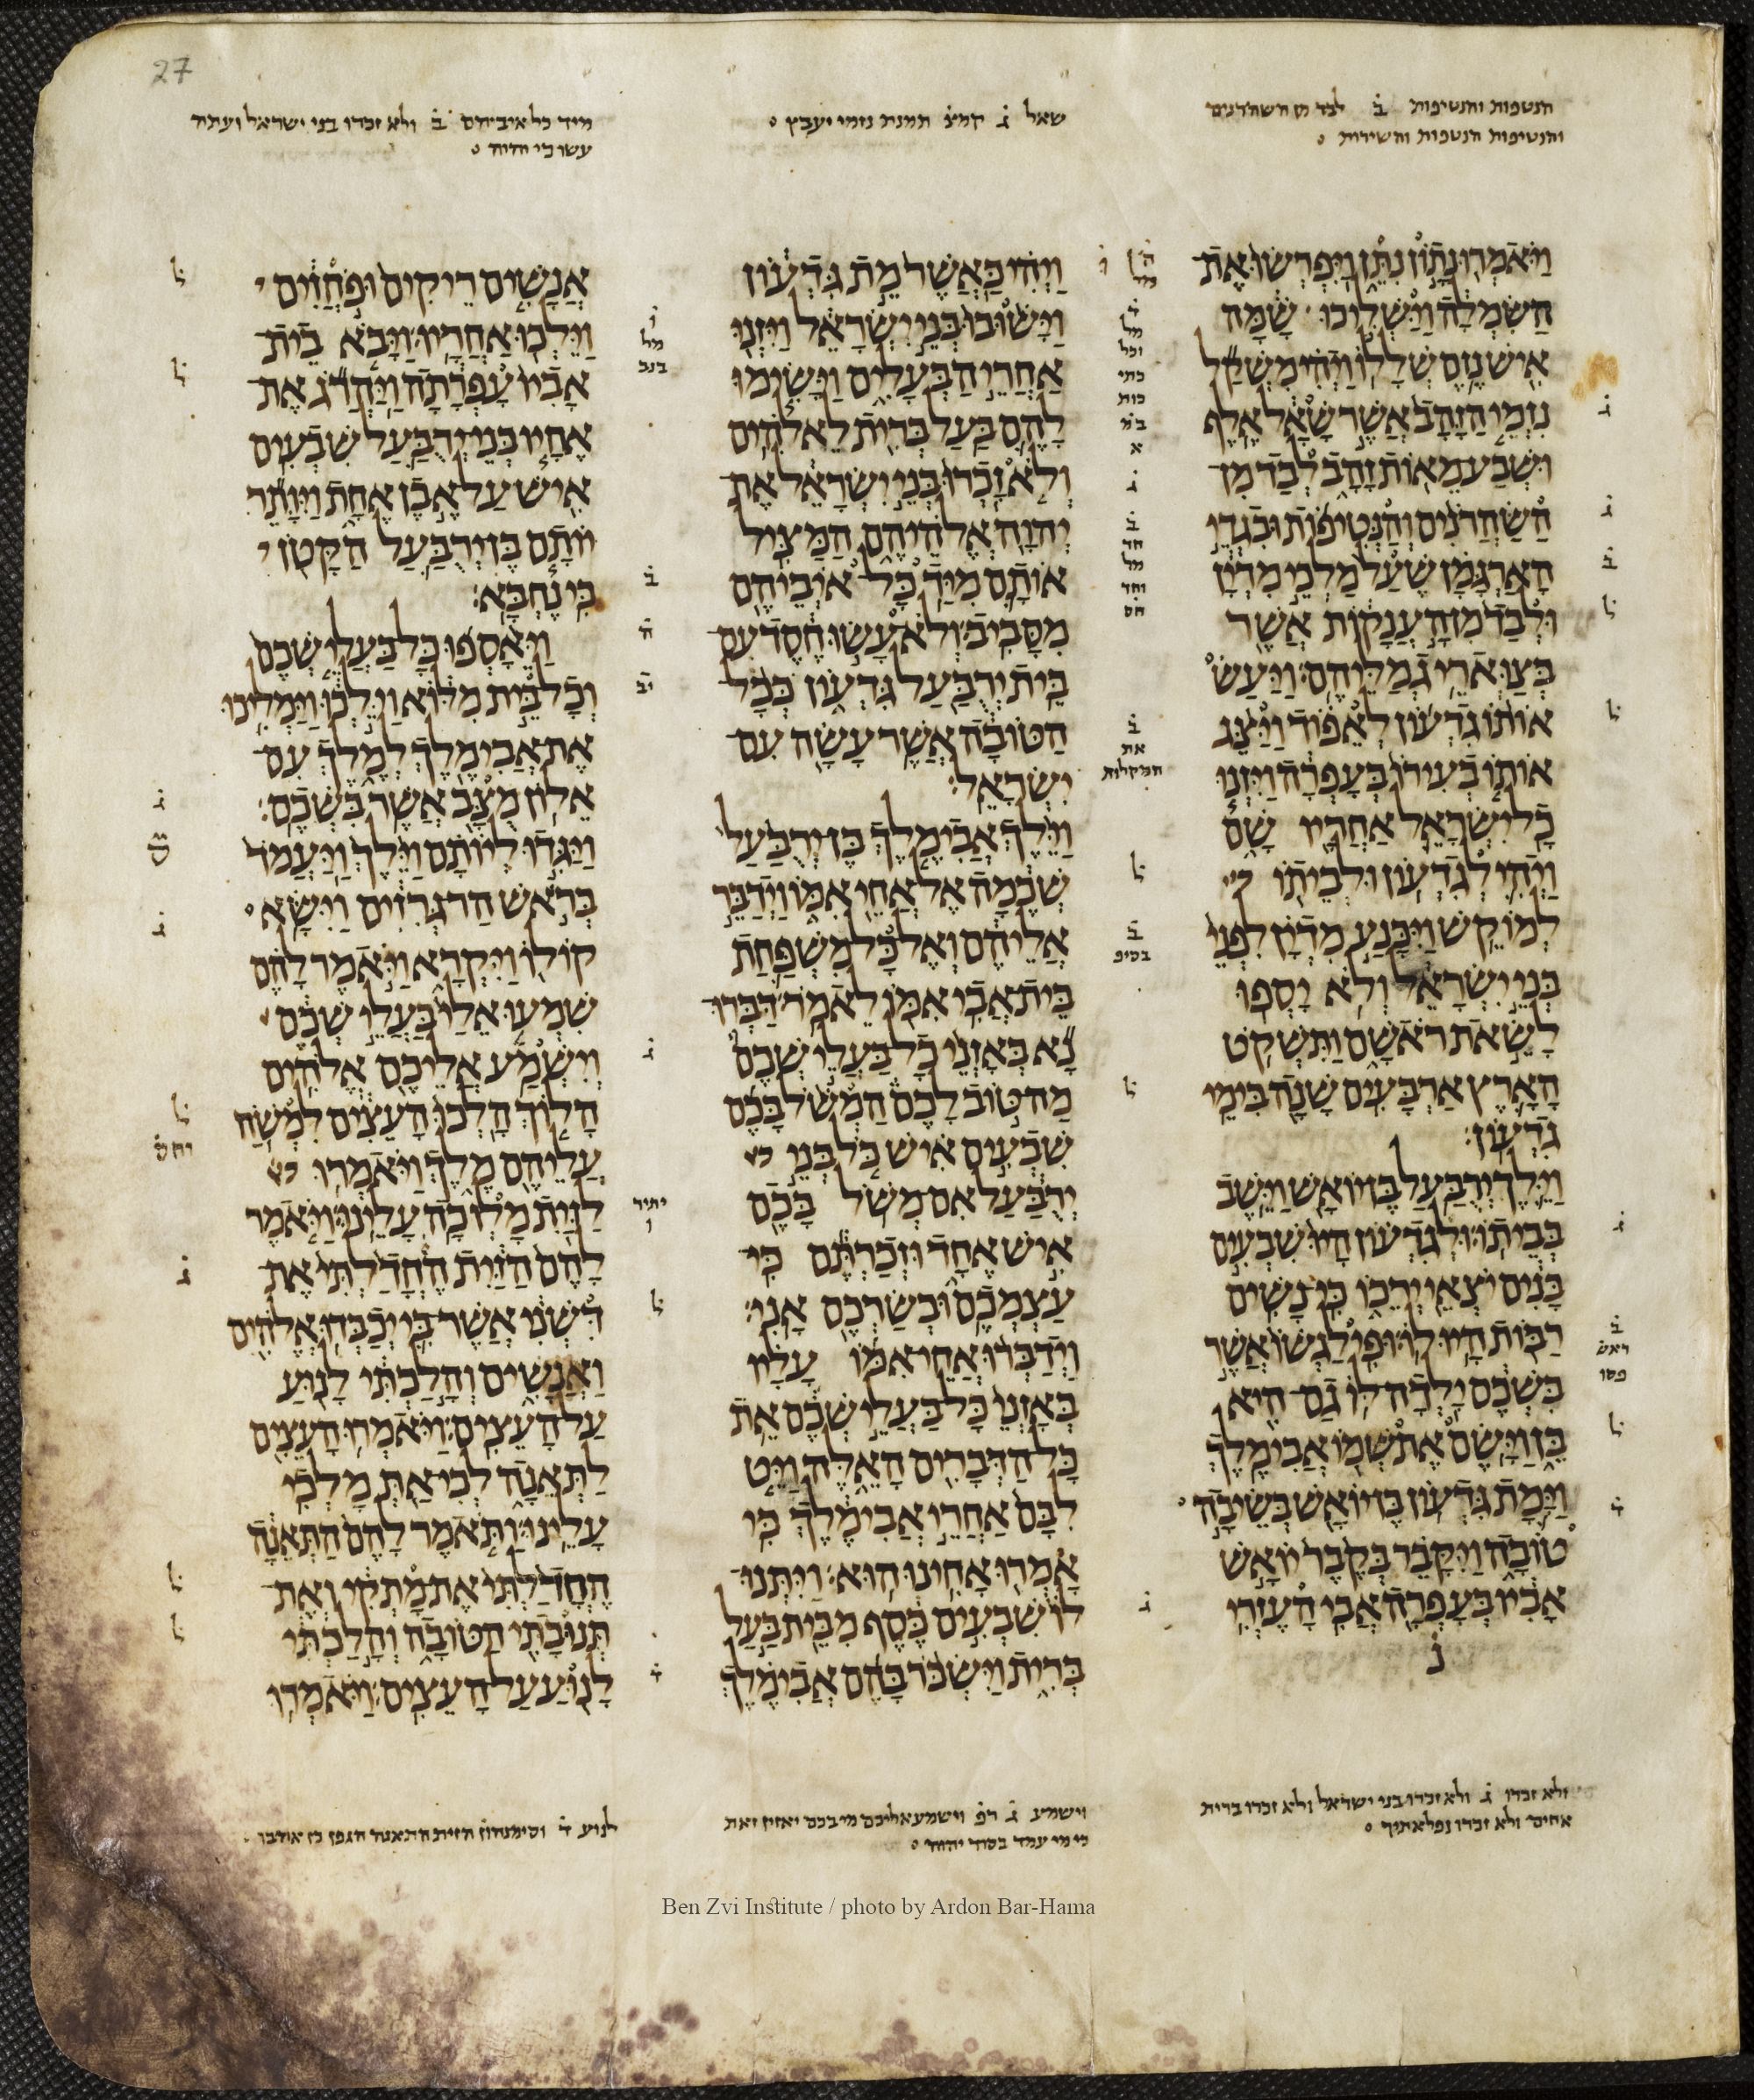 27
הנטפות והנטיפות ב לבד מן השהרנים
והנטיפות הנטפות והשירות
שאל ג קמצ תמנת נזמי יעבץ
מיד כל איביהם ב ולא זכרו בני ישראל ועתיד
עשו כי יהיה
וַיֹּאמְרוּ נָתוֹן נִתֵּן וַיִּפְרְשׂוּ אֶת
הַשִּׂמְלָה וַיַּשְׁלִיכוּ שָׁמָּה
אִישׁ נֶזֶם שְׁלָלוֹ וַיְהִי מִשְׁקַל
נִזְמֵי הַזָּהָב אֲשֶׁר שָׁאָל אֶלֶף
וּשְׁבַע מֵאוֹת זָהָב לְבַד מִן
הַשַּׂהֲרֹנִים וְהַנְּטִיפוֹת וּבִגְדֵי
הָאַרְגָּמָן שֶׁעַל מַלְכֵי מִדְיָן
וּלְבַד מִן הָעֲנָקוֹת אֲשֶׁר
בְּצַוְּארֵי גְמַלֵּיהֶם וַיַּעַשׂ
אוֹתוֹ גִדְעוֹן לְאֵפוֹד וַיַּצֵּג
אוֹתוֹ בְעִירוֹ בְּעָפְרָה וַיִּזְנוּ
כָל יִשְׂרָאֵל אַחֲרָיו שָׁם
וַיְהִי לְגִדְעוֹן וּלְבֵיתוֹ
לְמוֹקֵשׁ וַיִּכָּנַע מִדְיָן לִפְנֵי
בְּנֵי יִשְׂרָאֵל וְלֹא יָסְפוּ
לָשֵׂאת רֹאשָׁם וַתִּשְׁקֹט
הָאָרֶץ אַרְבָּעִים שָׁנָה בִּימֵי
גִדְעוֹן
וַיֵּלֶךְ יְרֻבַּעַל בֶּן יוֹאָשׁ וַיֵּשֶׁב
בְּבֵיתוֹ וּלְגִדְעוֹן הָיוּ שִׁבְעִים
בָּנִים יֹצְאֵי יְרֵכוֹ כִּי נָשִׁים
רַבּוֹת הָיוּ לוֹ וּפִילַגְשׁוֹ אֲשֶׁר
בִּשְׁכֶם יָלְדָה לּוֹ גַם הִיא
בֵּן וַיָּשֶׂם אֶת שְׁמוֹ אֲבִימֶלֶךְ
וַיָּמָת גִּדְעוֹן בֶּן יוֹאָשׁ בְּשֵׂיבָה
טוֹבָה וַיִּקָּבֵר בְּקֶבֶר יוֹאָשׁ
אָבִיו בְּעָפְרָה אֲבִי הָעֶזְרִי
וַיְהִי כַּאֲשֶׁר מֵת גִּדְעוֹן
וַיָּשׁוּבוּ בְּנֵי יִשְׂרָאֵל וַיִּזְנוּ
אַחֲרֵי הַבְּעָלִים וַיָּשִׂימוּ
לָהֶם בַּעַל בְּרִית לֵאלֹהִים
וְלֹא זָכְרוּ בְּנֵי יִשְׂרָאֵל אֶת
יְהוָה אֱלֹהֵיהֶם הַמַּצִּיל
אוֹתָם מִיַּד כָּל אוֹיְבֵיהֶם
מִסָּבִיב וְלֹא עָשׂוּ חֶסֶד עִם
בֵּית יְרֻבַּעַל גִּדְעוֹן כְּכָל
הַטּוֹבָה אֲשֶׁר עָשָׂה עִם
יִשְׂרָאֵל
וַיֵּלֶךְ אֲבִימֶלֶךְ בֶּן יְרֻבַּעַל
שְׁכֶמָה אֶל אֲחֵי אִמּוֹ וַיְדַבֵּר
אֲלֵיהֶם וְאֶל כָּל מִשְׁפַּחַת
בֵּית אֲבִי אִמּוֹ לֵאמֹר דַּבְּרוּ
נָא בְּאָזְנֵי כָל בַּעֲלֵי שְׁכֶם
מַה טּוֹב לָכֶם הַמְשֹׁל בָּכֶם
שִׁבְעִים אִישׁ כֹּל בְּנֵי
יְרֻבַּעַל אִם מְשֹׁל בָּכֶם
אִישׁ אֶחָד וּזְכַרְתֶּם כִּי
עַצְמְכֶם וּבְשַׂרְכֶם אָנִי
וַיְדַבְּרוּ אֲחֵי אִמּוֹ עָלָיו
בְּאָזְנֵי כָּל בַּעֲלֵי שְׁכֶם אֵת
כָּל הַדְּבָרִים הָאֵלֶּה וַיֵּט
לִבָּם אַחֲרֵי אֲבִימֶלֶךְ כִּי
אָמְרוּ אָחִינוּ הוּא וַיִּתְּנוּ
לוֹ שִׁבְעִים כֶּסֶף מִבֵּית בַּעַל
בְּרִית וַיִּשְׂכֹּר בָּהֶם אֲבִימֶלֶךְ
אֲנָשִׁים רֵיקִים וּפֹחֲזִים
וַיֵּלְכוּ אַחֲרָיו וַיָּבֹא בֵית
אָבִיו עָפְרָתָה וַיַּהֲרֹג אֶת
אֶחָיו בְּנֵי יְרֻבַּעַל שִׁבְעִים
אִישׁ עַל אֶבֶן אֶחָת וַיִּוָּתֵר
יוֹתָם בֶּן יְרֻבַּעַל הַקָּטֹן
כִּי נֶחְבָּא
וַיֵּאָסְפוּ כָּל בַּעֲלֵי שְׁכֶם
וְכָל בֵּית מִלּוֹא וַיֵּלְכוּ וַיַּמְלִיכוּ
אֶת אֲבִימֶלֶךְ לְמֶלֶךְ עִם
אֵלוֹן מֻצָּב אֲשֶׁר בִּשְׁכֶם
וַיַּגִּדוּ לְיוֹתָם וַיֵּלֶךְ וַיַּעֲמֹד
בְּרֹאשׁ הַר גְּרִזִים וַיִּשָּׂא
קוֹלוֹ וַיִּקְרָא וַיֹּאמֶר לָהֶם
שִׁמְעוּ אֵלַי בַּעֲלֵי שְׁכֶם
וְיִשְׁמַע אֲלֵיכֶם אֱלֹהִים
הָלוֹךְ הָלְכוּ הָעֵצִים לִמְשֹׁחַ
עֲלֵיהֶם מֶלֶךְ וַיֹּאמְרוּ
לַזַּיִת מָלְוכָה עָלֵינוּ וַיֹּאמֶר
לָהֶם הַזַּיִת הֶחֳדַלְתִּי אֶת
דִּשְׁנִי אֲשֶׁר בִּי יְכַבְּדוּ אֱלֹהִים
וַאֲנָשִׁים וְהָלַכְתִּי לָנוּעַ
עַל הָעֵצִים וַיֹּאמְרוּ הָעֵצִים
לַתְּאֵנָה לְכִי אַתְּ מָלְכִי
עָלֵינוּ וַתֹּאמֶר לָהֶם הַתְּאֵנָה
הֶחֳדַלְתִּי אֶת מָתְקִי וְאֶת
תְּנוּבָתִי הַטּוֹבָה וְהָלַכְתִּי
לָנוּעַ עַל הָעֵצִים וַיֹּאמְרוּ
ולא זכרו ג ולא זכרו בני ישראל ולא זכרו ברית
אחים ולא זכרו נפלאתיך
וישמע ג רפ וישמע אליכם מי בכם יאזין זאת
כי מי עמד בסוד יהוה
לנוע ד וסימנהון הזית התאנה הגפן כן אהבו
Ben Zvi Institute / photo by Ardon Bar-Hama